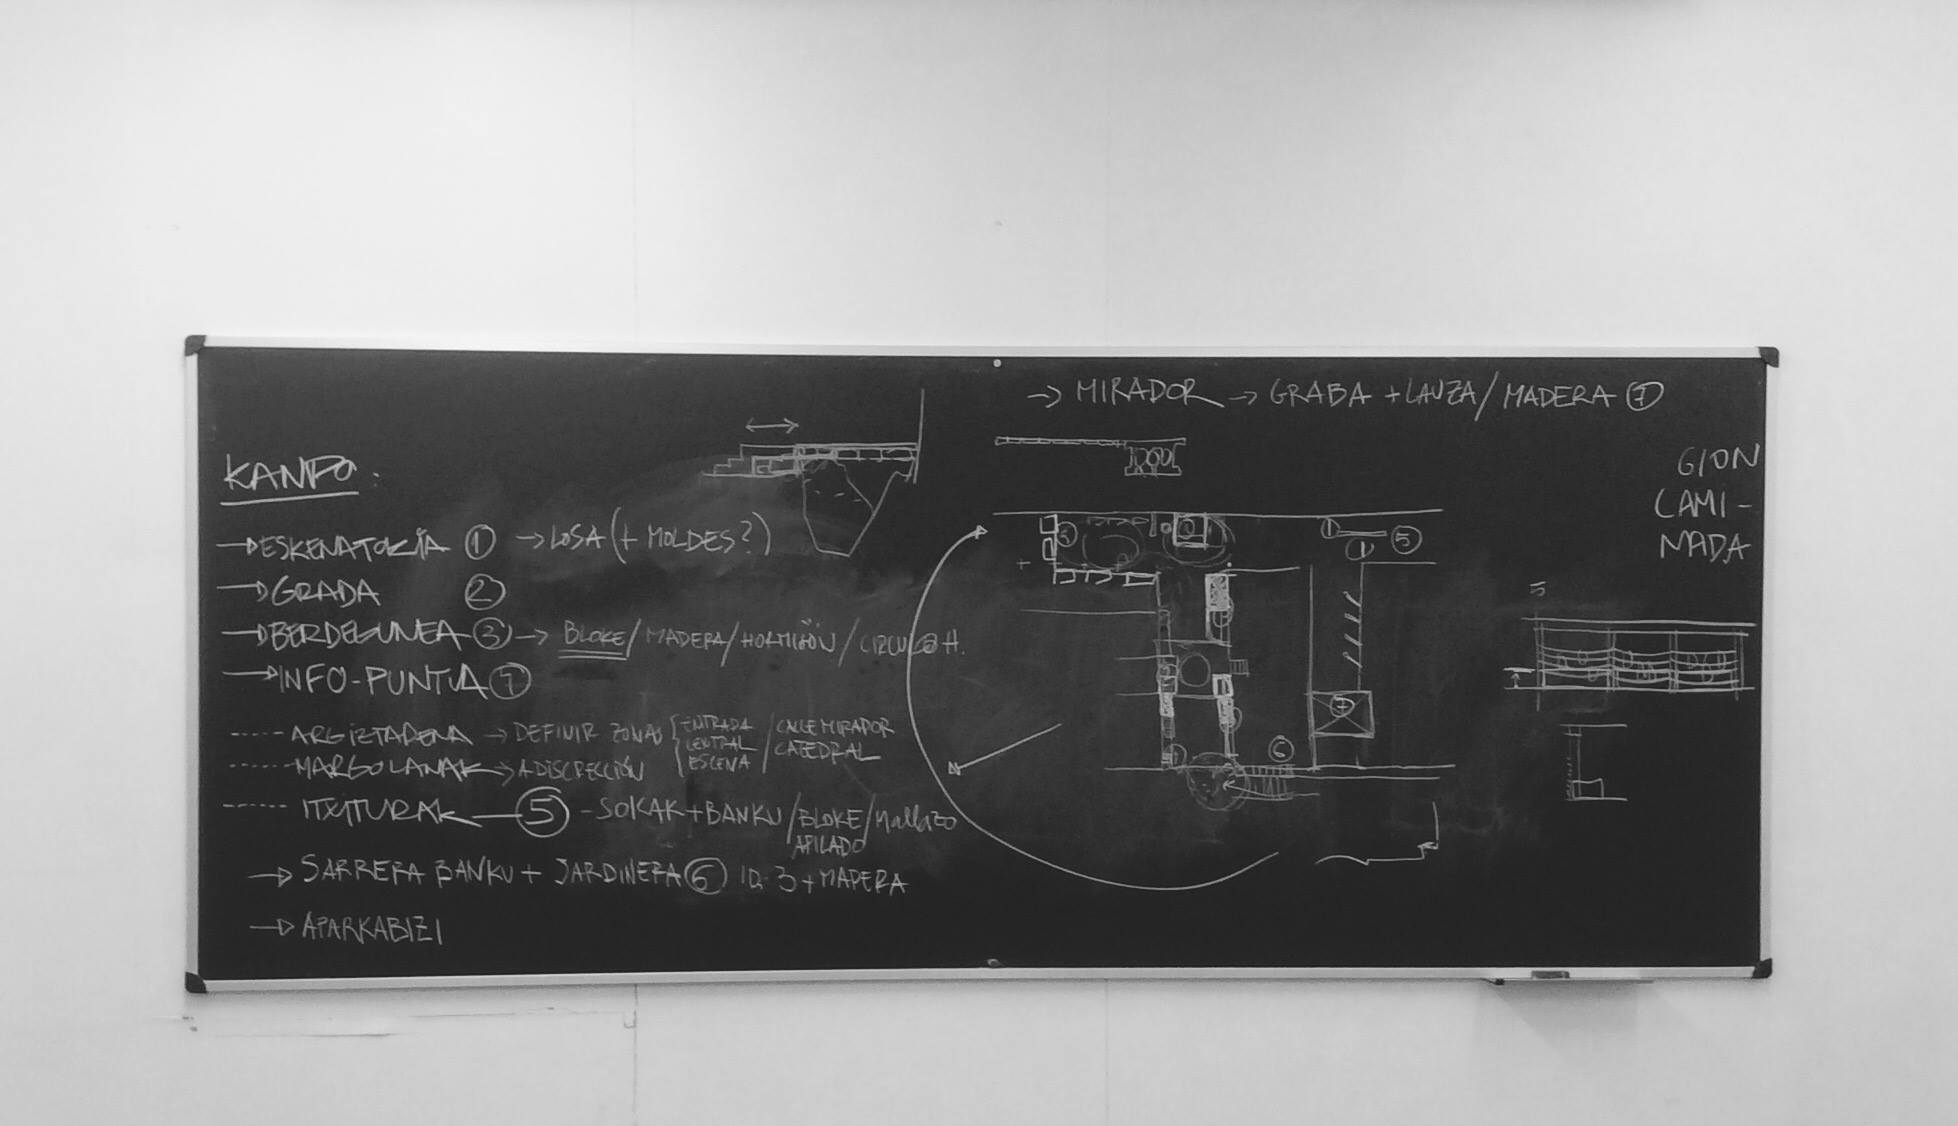 → MIRADOR → GRABA + LAUZA / MADERA 7
KANPO:
GION
CAMI-
NADA
→ ESKENATOKIA 1 → LOSA (+ MOLDES?)
→ GRADA 2
→ BERDEGUNEA 3 → BLOKE / MADERA / HORMIGÓN /
→ INFO-PUNTUA
ARGIZTAPENA → DEFINIR ZONAS { ENTRADA / CALLE MIRADOR
CENTRAL CATEDRAL
ESCENA
MARGOLANAK → A DISCRECCIÓN
ITXITURAK ← 5 - SOKAK + BANKU / BLOKE / MALLAZO
APILADO
→ SARRERA BANKU + JARDINERA 6 ID. 3 + MADERA
→ APARKABIZI
3
1
5
7
6
5